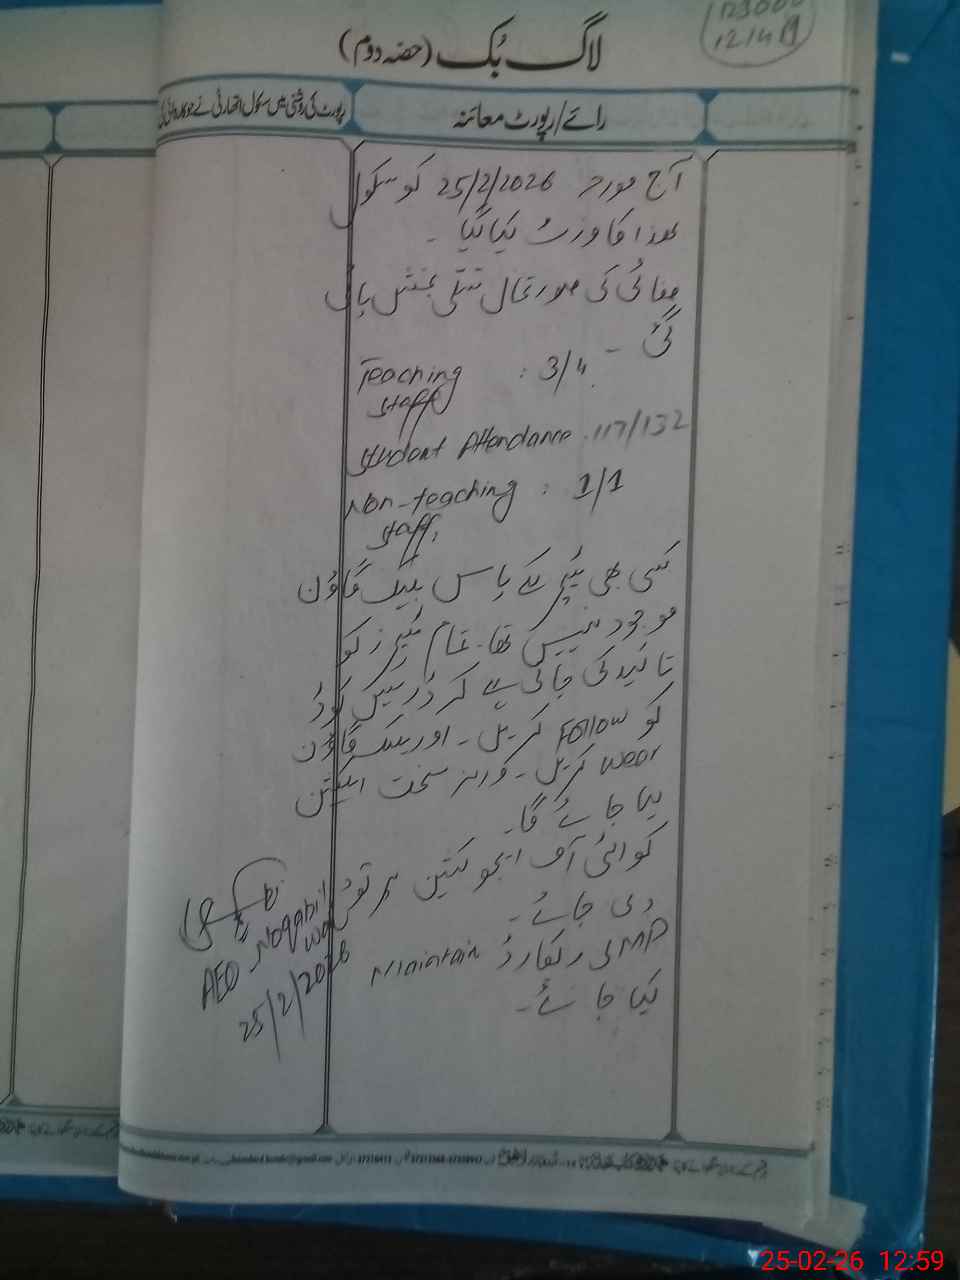 لاگ بُک (حصہ دوم)
رائے/رپورٹ معائنہ
رپورٹ کی روشنی میں سکول اتھارٹی نے جو کارروائی کی
آج مورخہ 25/2/2026 کو سکول
ھذا کا وزٹ کیا گیا ۔
صفائی کی صورتحال تسلی بخش پائی
گئی ۔
Teaching : 3/4
Staff
Student Attendance : 117/132
Non-teaching : 1/1
Staff
کسی بھی ٹیچر کے پاس بلیک گاؤن
موجود نہیں تھا۔ تمام ٹیچرز کو
تائید کی جاتی ہے کہ ڈریس کوڈ
کو Follow کریں ۔ اور بلیک گاؤن
wear کریں ۔ ورنہ سخت ایکشن
لیا جائے گا۔
کوالٹی آف ایجوکیشن پر توجہ
دی جائے ۔
کی رکارڈ Maintain
کیا جائے ۔
AEO Noqabil
Wa
25/2/2026
12/4/19
25-02-26 12:59